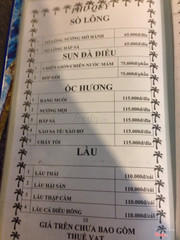 PHÚ QUÝ
SÒ LÔNG
SÒ LÔNG NƯỚNG MỠ HÀNH 65.000đ/dĩa
SÒ LÔNG HẤP SẢ
SỤN ĐÀ ĐIỂU
CHIÊN GIÒN/CHIÊN NƯỚC MẮM 75.000đ/phần
BÓP GỎI 75.000đ/phần
ỐC HƯƠNG
RANG MUỐI 115.000đ/dĩa
NƯỚNG 115.000đ/dĩa
HẤP SẢ 115.000đ/dĩa
XÀO ME/XÀO BƠ 115.000đ/dĩa
CHÁY TỎI 115.000đ/dĩa
LẨU
LẨU THÁI 110.000đ/nồi
LẨU HẢI SẢN 110.000đ/nồi
LẨU THẬP CẨM 110.000đ/nồi
LẨU CÁ DIÊU HỒNG 110.000đ/nồi
10
GIÁ TRÊN CHƯA BAO GỒM
THUẾ VAT